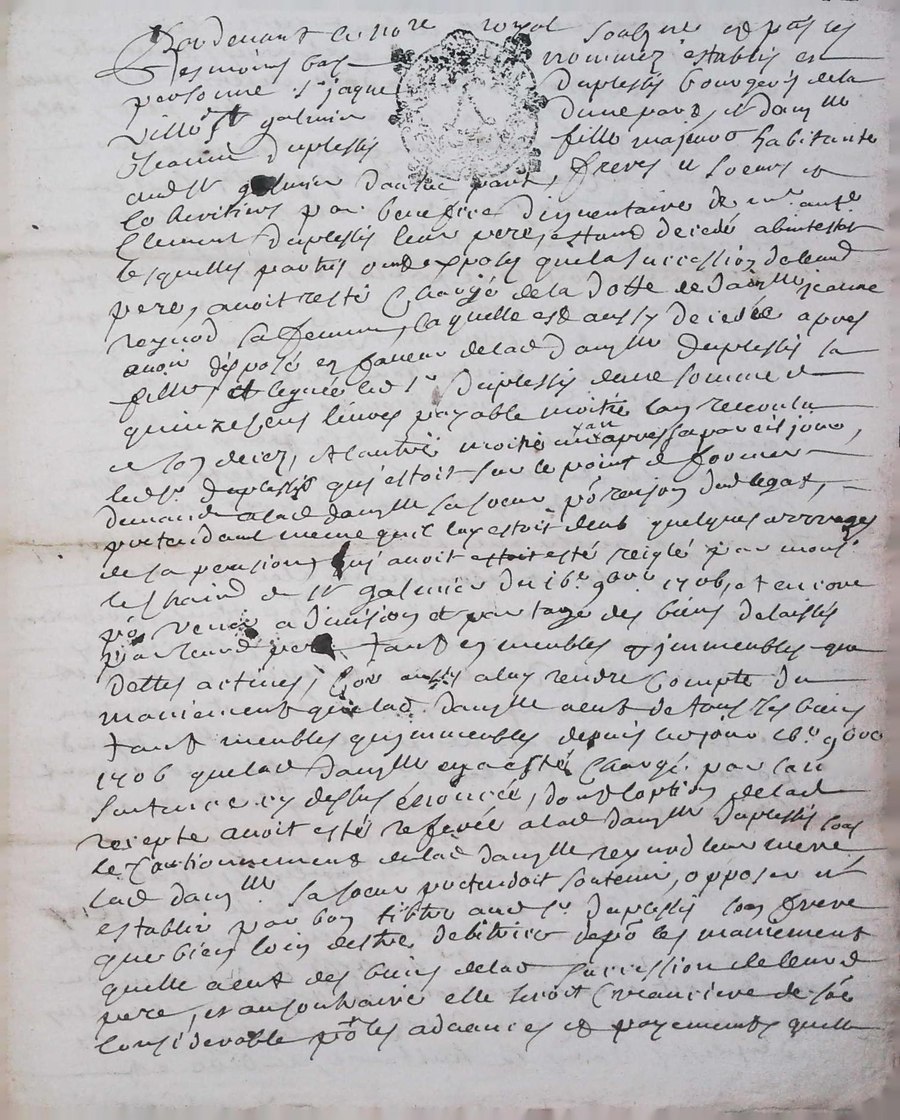 Pardevant le no.re royal soubsigné et pnts les
tesmoins bas nommez establis en
personne sr jaque duplessis bourgeois de la
ville de st galmier d'une part, et damlle
Jeanne duplessis fille majeure habitante
aud st galmier d'autre part, freres et soeurs et
co heritiers par benefice d'inventaire de mr ant.e
Clement duplessis leur pere, estant decedé abintestat
lesquelles parties ont exposés que la succession de leurd
pere, avoit resté chargé de la dotte de damlle jeanne
reynod sa femme, laquelle est aussy decedée apres
avoir disposé en faveur de lad damlle duplessis sa
fille, et legué aud sr duplessis d'une somme de
quinze cens livres payable moitié l'an revolu
de son decez, et l'autre moitié un an apres a pareil jour,
led sr duplessis qu'estoit sur le point de former
demande a lad damlle sa soeur po raison dud legat,
pretendant meme qu'il luy estoit deub quelques arrerages
de sa pension, qui avoit esté reiglé par mons.r
le chatelain de st galmier du 16e 9bre 1706, et encore
po venir a division et partage des biens delaissés
par leurd pere tant en meubles qu'immeubles que
dettes actives, comme aussy a luy rendre compte du
maniement que lad. damlle a eut de tous les biens
tant meubles qu'immeubles depuis ce jour 16e 9bre
1706 que lad damlle en a esté chargé par la
sentence cy dessus énoncée, dont l'option de lad
recepte avoit esté referée a lad damlle duplessis sous
le cautionnement de lad damlle reynod leur mere
lad damlle sa soeur pretendoit soutenir, opposer et
establir par bon tiltre aud sr duplessis son frere
que bien loin d'estre debitrice depuis le maniement
quelle a eut des biens de lad succession de leurd
pere, et au contraire elle seroit creanciere de soe
considerable po les advances et payements quelle